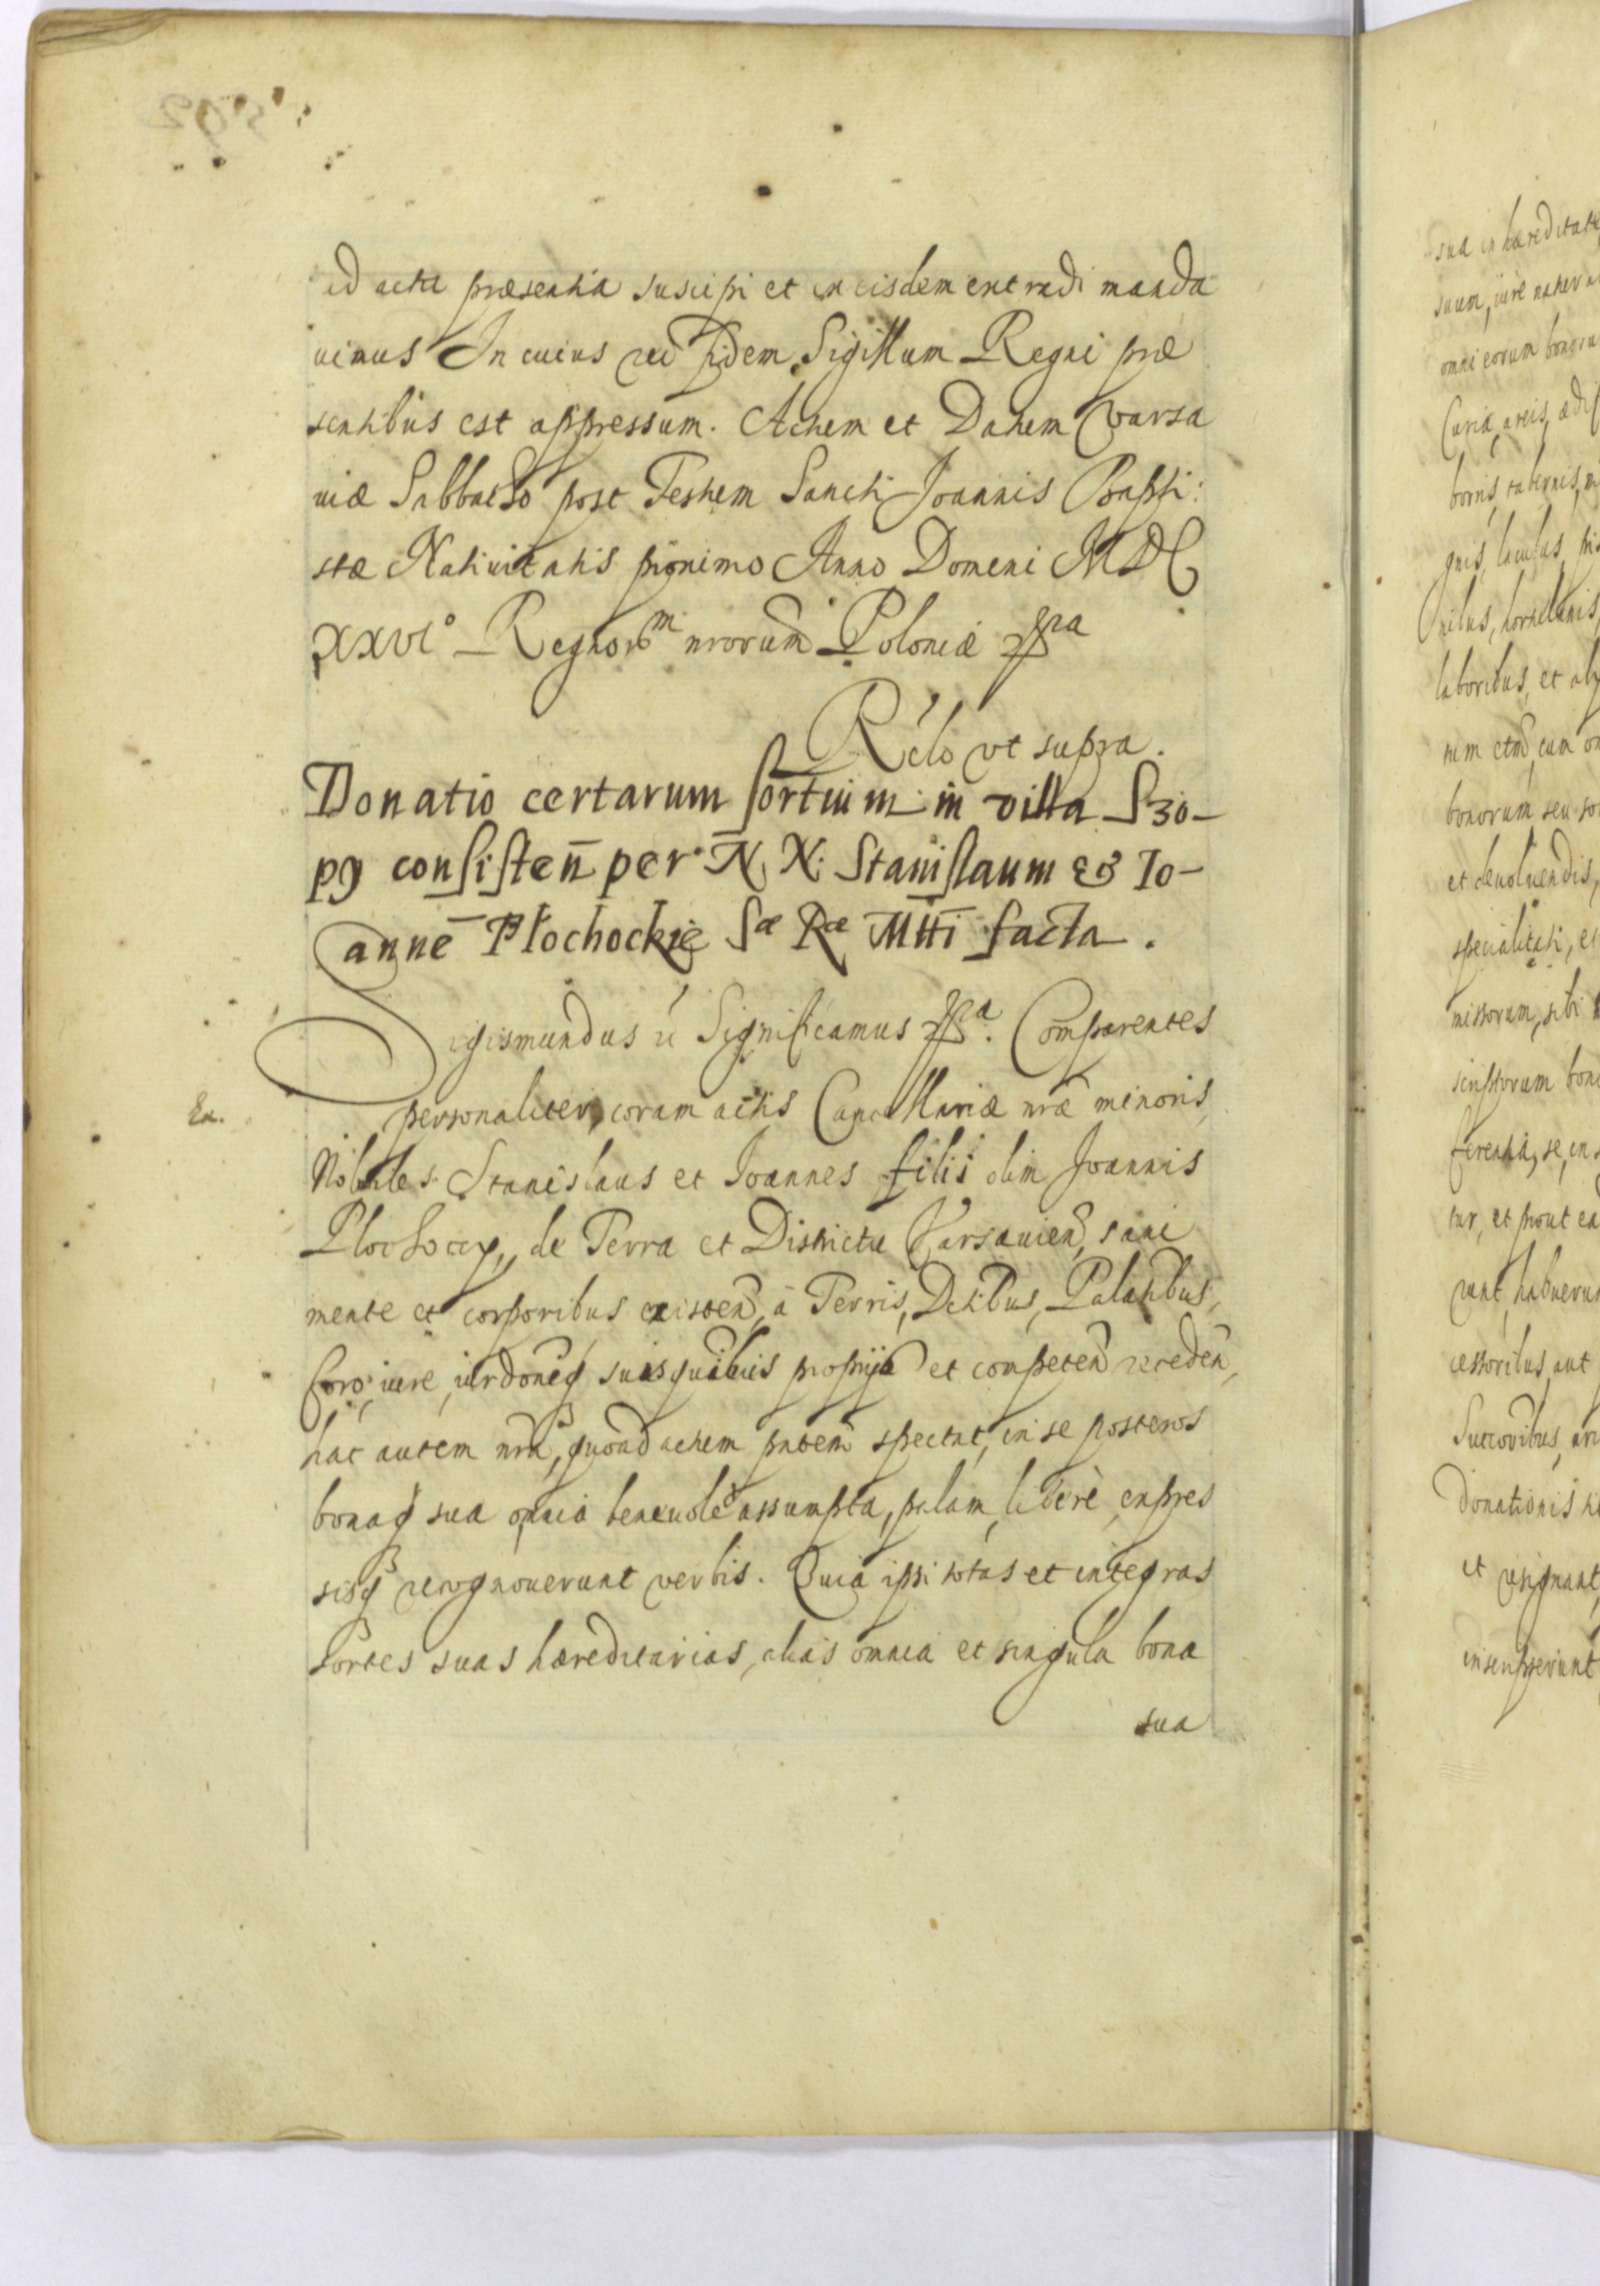 ad acta præsentia suscipi et in eisdem extradi manda
uimus In cuius rei fidem Sigillum Regni præ
sentibus est appressum. Actum et Datum Varsa
uiæ Sabbatho post Festum Sancti Joannis Bapti:
stæ Natiuitatis proximo Anno Domini MDC
XXVI° Regnorm nrorum Poloniæ
Rélo vt supra.
Donatio certarum sortium in villa Szo-
py consisten̄ per N. N. Stanislaum & Io-
annē Płochockie Sæ Ræ Mtti facta.
Sigismundus Significamus Comparentes
personaliter coram actis Cancellariæ nræ minoris,
Ex.
Nobiles Stanislaus et Joannes filii olim Joannis
Plochoccy, de Terra et Districtu Varsauien, sani
mente et corporibus existen, à Terris, Dctibus, Palatibus,
foro, iure, iurdoneq suis quibuis proprijs et competen receden,
hac autem nra, quoad actum pntem spectat, in se posteros
bonaq sua omnia beneuole assumpta, palam, liberè, expres
sisq recognouerunt verbis. Quia ipsi totas et integras
Sortes suas hæreditarias, alias omnia et singula bona
sua
sua in hæreditate
suum, iure
omni eorum bonoru
Curia, areis, ædif
borris, tabernis,
gnis, lacubus, pis
laboribus, et
bonorum seu so
et deuoluendis,
specialitati, et
missorum, sibi
scriptorum bono
ferentia, se, in
tur, et prout ea
runt, habuerun
cessoribus, aut
Succoribus,
donationis
et resignant,
inscripserunt